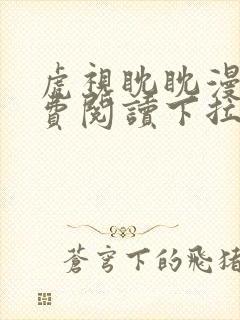 虎視眈眈漫
費閱讀下拉
蒼穹下的飛豬